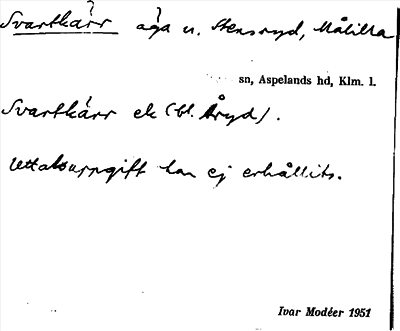 Svartkärr äga u. Stensryd, Målilla
sn, Aspelands hd, Klm. l.
Svartkärr ek (bl. Åryd).
Uttalsuppgift kan ej erhållits.
Ivar Modéer 1951